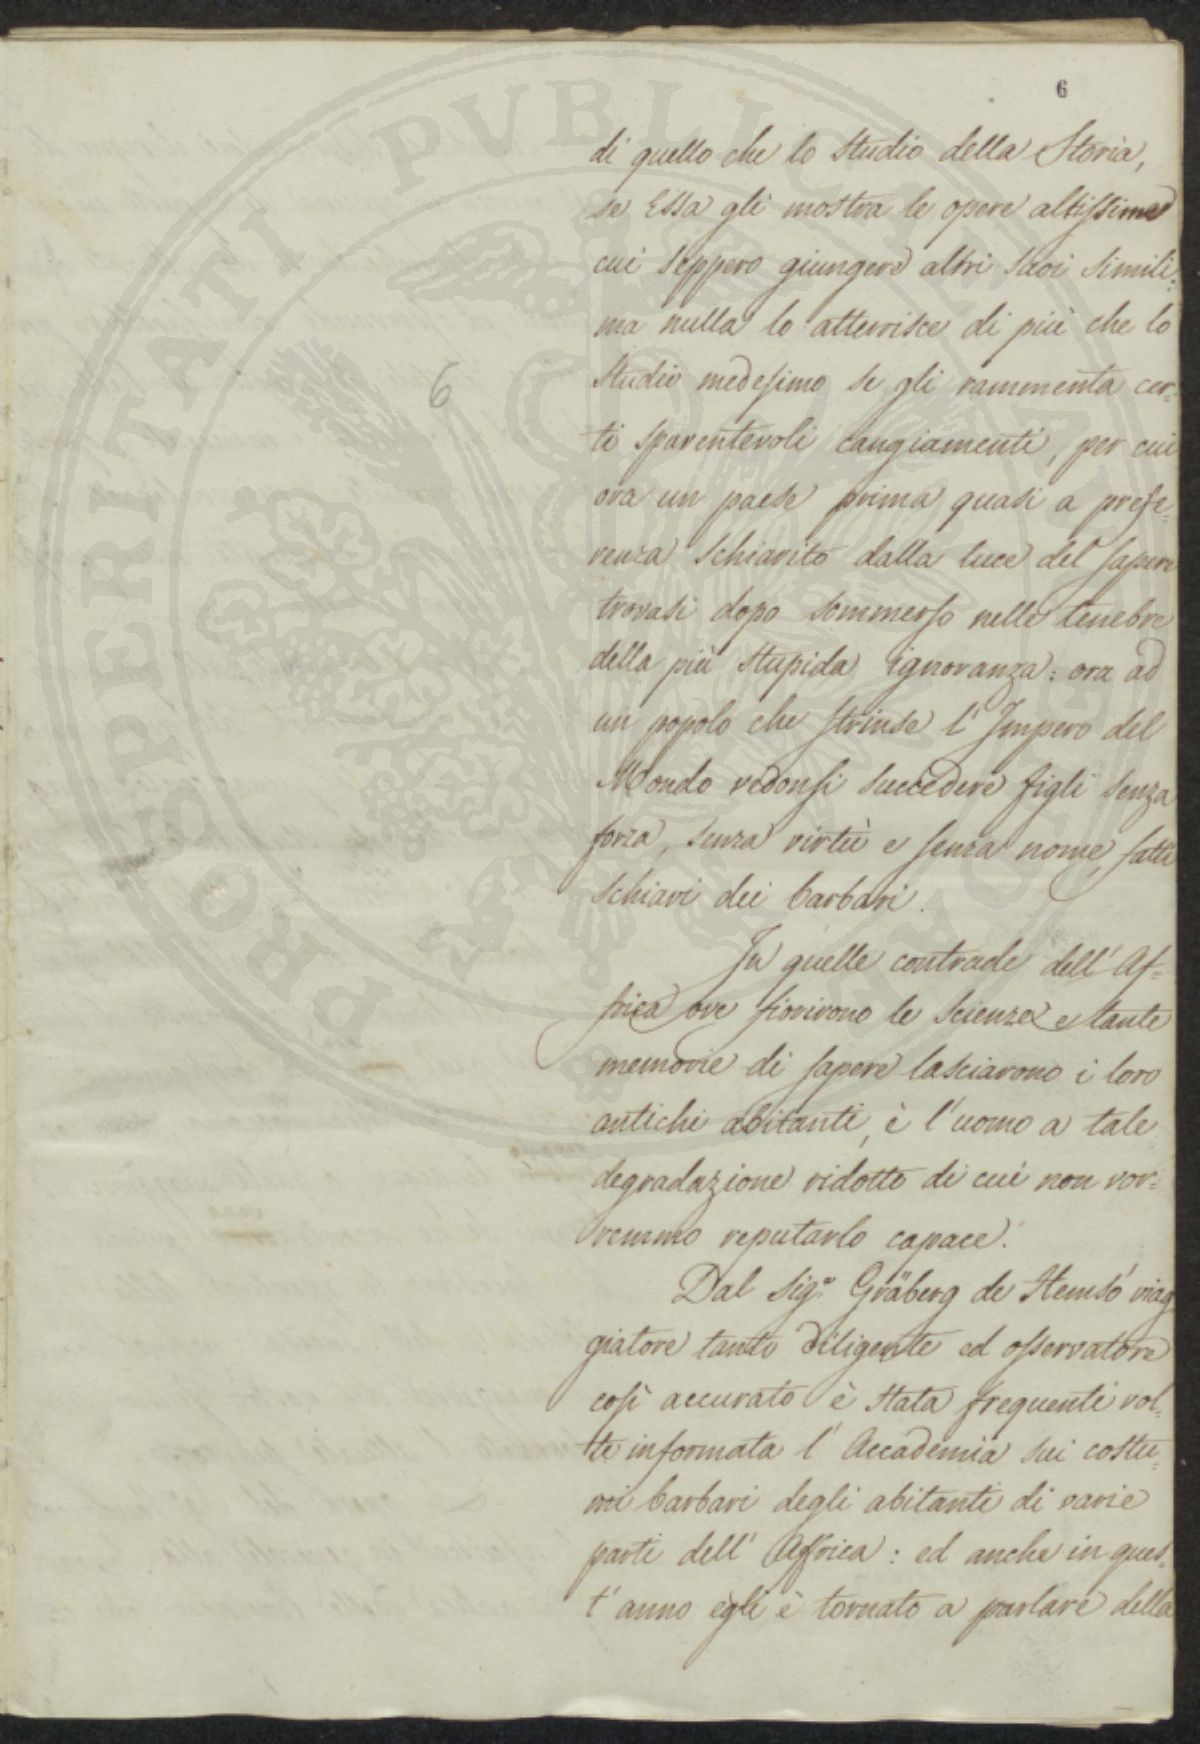 6
di quello che lo studio della Storia,
se Essa gli mostra le opere altissime
cui seppero giungere altri suoi simili:
ma nulla lo atterrisce di più che lo
studio medesimo se gli rammenta cer-
ti spaventevoli cangiamenti, per cui
ora un paese prima quasi a prefe-
renza schiarito dalla luce del sapere
trovasi dopo sommerso nelle tenebre
della più stupida ignoranza: ora ad
un popolo che strinse l'Impero del
Mondo vedonsi succedere figli senza
forza, senza virtù e senza nome, fatti
schiavi dei barbari.
In quelle contrade dell'Af-
frica ove fiorirono le scienze e tante
memorie di sapere lasciarono i loro
antichi abitanti, è l'uomo a tale
degradazione ridotto di cui non vor-
remmo reputarlo capace.
Dal Sig.r Gräberg de Hemsó viag
giatore tanto diligente ed osservatore
così accurato è stata frequenti vol-
te informata l'Accademia sui costu-
mi barbari degli abitanti di varie
parti dell'Affrica: ed anche in ques-
t'anno egli è tornato a parlare della
6
PROSPERITATI PVBLICAE AVGENDAE